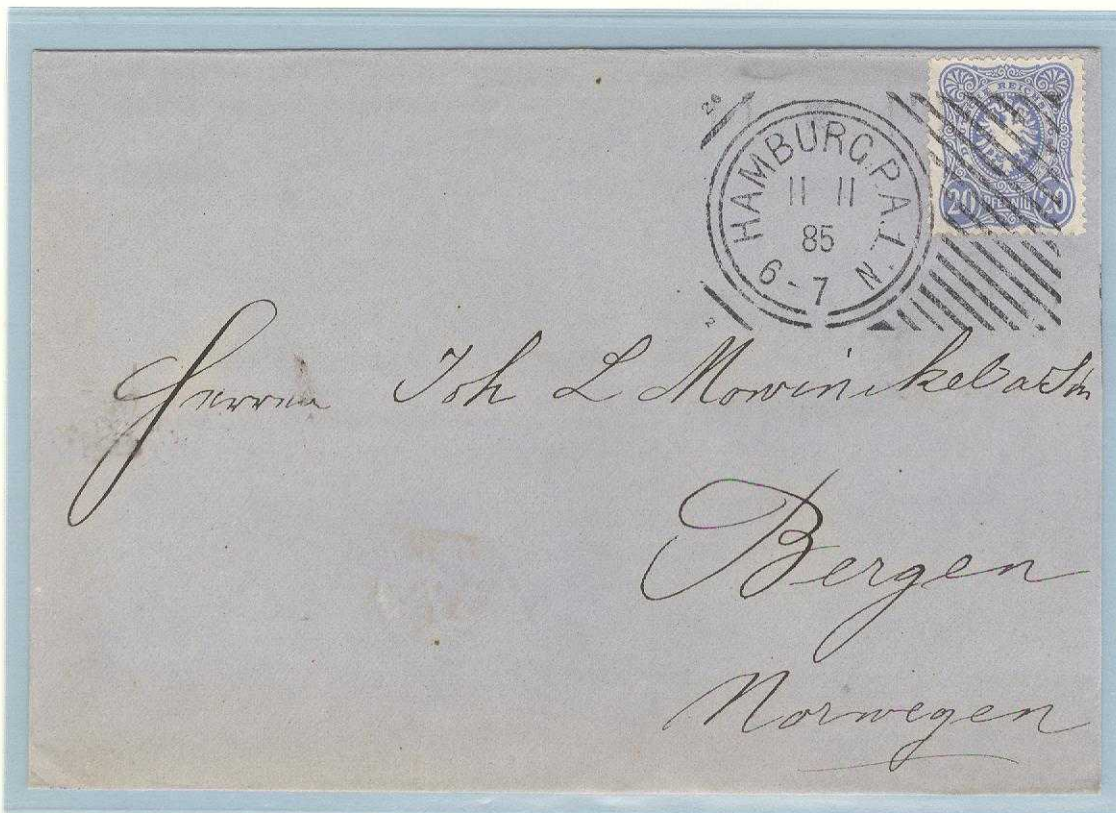 26
REICHS
HAMBURG.P.A.1.
11 11
85
6-7 N.
2
20 PFENNIG 20
Herren Joh L Mowinckel a Sön
Bergen
Norwegen